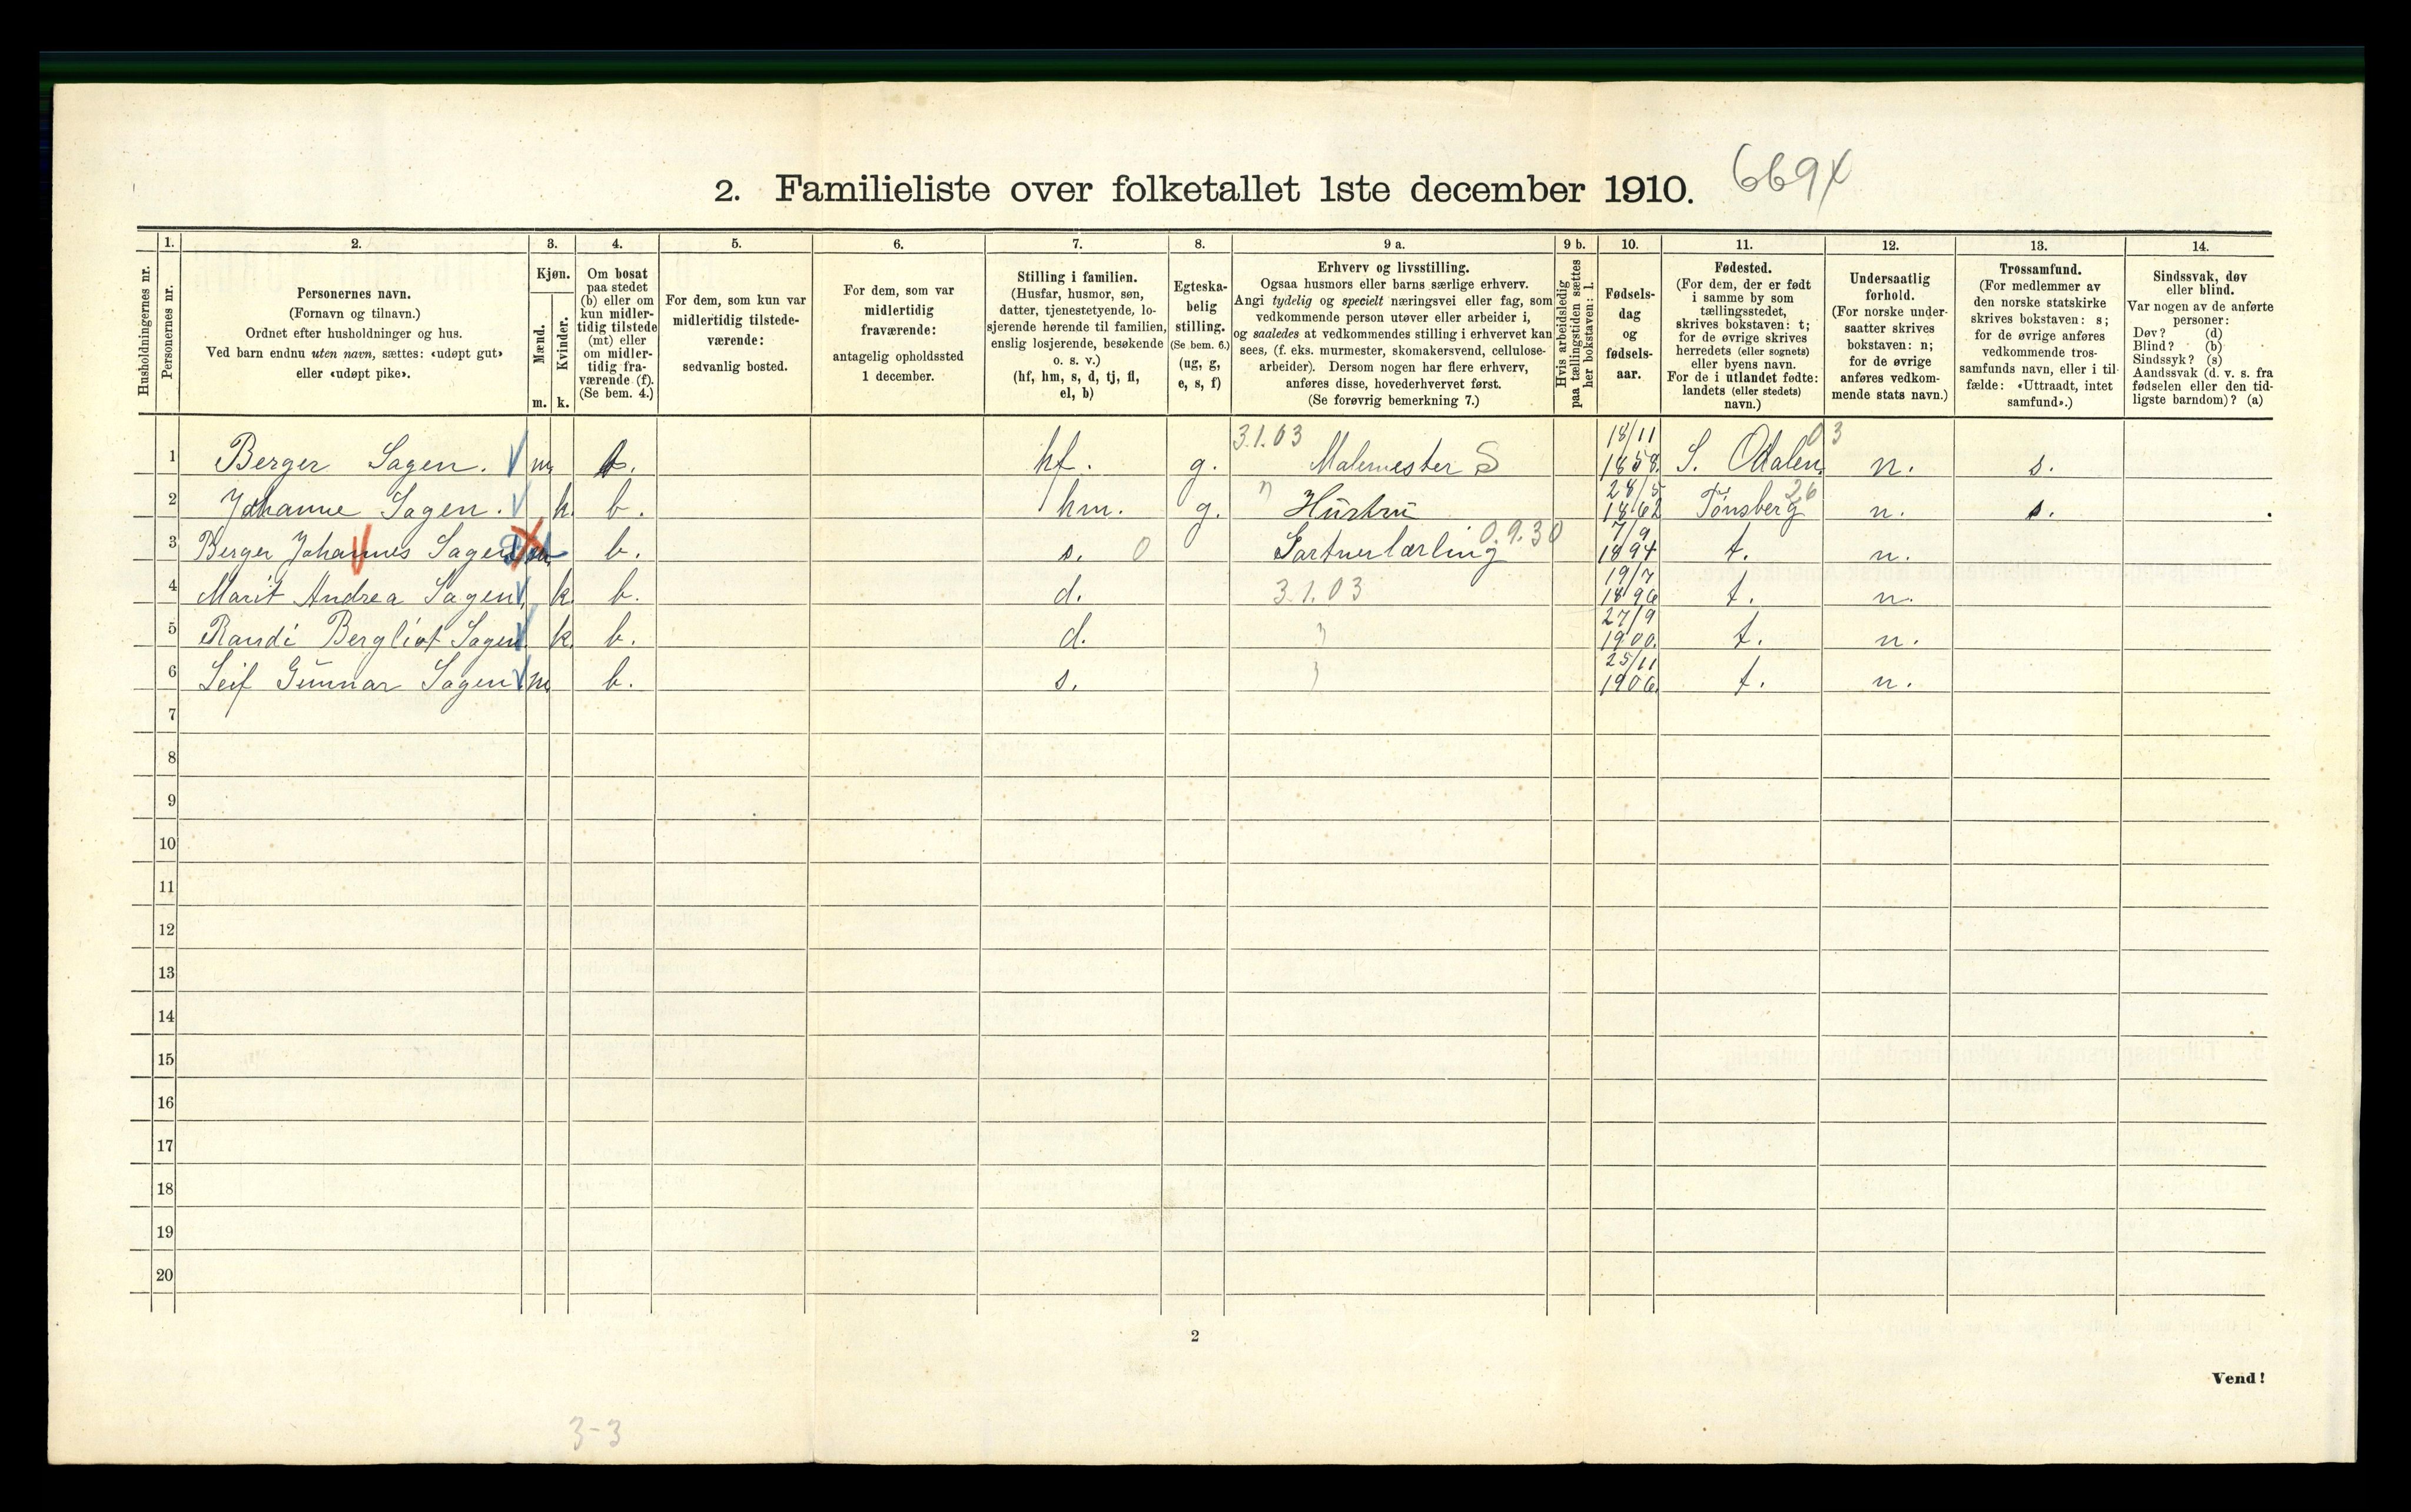 2. Familieliste over folketallet 1ste december 1910. 669
1. 2. 3. 4. 5. 6. 7. 8. 9 a. 9 b. 10. 11. 12. 13. 14.
Husholdningernes nr.
Personernes nr.
Personernes navn.
(Fornavn og tilnavn.)
Ordnet efter husholdninger og hus.
Ved barn endnu uten navn, sættes: «udøpt gut»
eller «udøpt pike».
Kjøn.
Mænd.
Kvinder.
m. k.
Om bosat
paa stedet
(b) eller om
kun midler-
tidig tilstede
(mt) eller
om midler-
tidig fra-
værende (f).
(Se bem. 4.)
For dem, som kun var
midlertidig tilstede-
værende:
sedvanlig bosted.
For dem, som var
midlertidig
fraværende:
antagelig opholdssted
1 december.
Stilling i familien.
(Husfar, husmor, søn,
datter, tjenestetyende, lo-
sjerende hørende til familien,
enslig losjerende, besøkende
o. s. v.)
(hf, hm, s, d, tj, fl,
el, b)
Egteska-
belig
stilling.
(Se bem. 6.)
(ug, g,
e, s, f)
Erhverv og livsstilling.
Ogsaa husmors eller barns særlige erhverv.
Angi tydelig og specielt næringsvei eller fag, som
vedkommende person utøver eller arbeider i,
og saaledes at vedkommendes stilling i erhvervet kan
sees, (f. eks. murmester, skomakersvend, cellulose-
arbeider). Dersom nogen har flere erhverv,
anføres disse, hovederhvervet først.
(Se forøvrig bemerkning 7.)
Hvis arbeidsledig
paa tællingstiden sættes
her bokstaven: l.
Fødsels-
dag
og
fødsels-
aar.
Fødested.
(For dem, der er født
i samme by som
tællingsstedet,
skrives bokstaven: t;
for de øvrige skrives
herredets (eller sognets)
eller byens navn.
For de i utlandet fødte:
landets (eller stedets)
navn.)
Undersaatlig
forhold.
(For norske under-
saatter skrives
bokstaven: n;
for de øvrige
anføres vedkom-
mende stats navn.)
Trossamfund.
(For medlemmer av
den norske statskirke
skrives bokstaven: s;
for de øvrige anføres
vedkommende tros-
samfunds navn, eller i til-
fælde: «Uttraadt, intet
samfund».)
Sindssvak, døv
eller blind.
Var nogen av de anførte
personer:
Døv? (d)
Blind? (b)
Sindssyk? (s)
Aandssvak (d. v. s. fra
fødselen eller den tid-
ligste barndom)? (a)
3.1.03 18/11 03
1 Berger Sagen. m b. hf. g. Malemester S 1858. S. Odalen n. s.
28/5 26
2 Johanne Sagen. k. b. hm. g. Hustru 1862 Tønsberg n. s.
0.9.30 7/9
3 Berger Johannes Sagen b. s. 0 Gartnerlærling 1894 t. n.
19/7
4 Marit Andrea Sagen k. b. d. 3.1.03 1896 t. n.
27/9
5 Randi Bergliot Sagen k. b. d. 1900. t. n.
25/11
6 Leif Gunnar Sagen m b. s. 1906. t. n.
7
8
9
10
11
12
13
14
15
16
17
18
19
20
2
Vend!
3-3